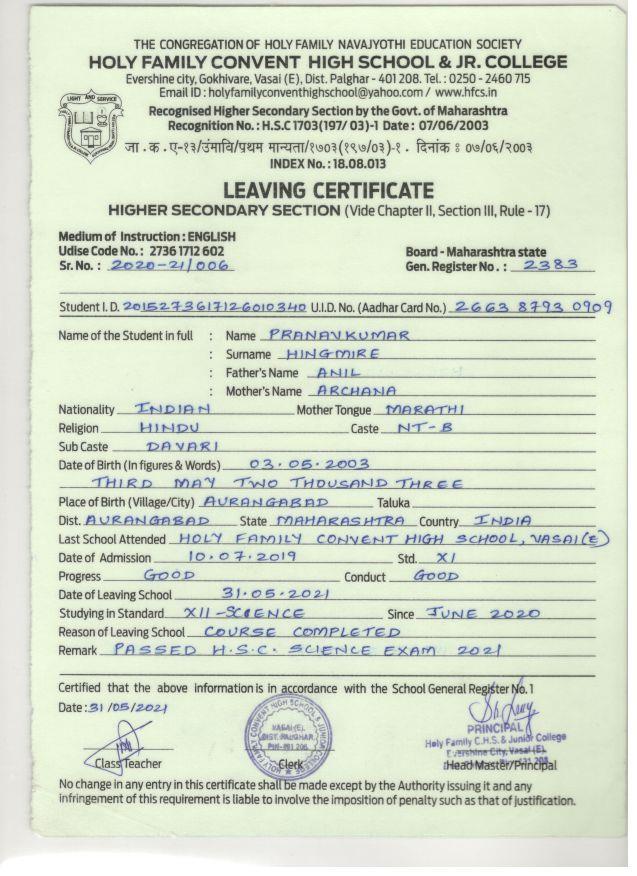 THE CONGREGATION OF HOLY FAMILY NAVAJYOTHI EDUCATION SOCIETY
HOLY FAMILY CONVENT HIGH SCHOOL & JR. COLLEGE
Evershine city, Gokhivare, Vasai (E), Dist. Palghar - 401 208. Tel. : 0250 - 2460 715
Email ID : holyfamilyconventhighschool@yahoo.com / www.hfcs.in
LIGHT AND SERVICE
Recognised Higher Secondary Section by the Govt. of Maharashtra
Recognition No. : H.S.C 1703(197/ 03)-1 Date : 07/06/2003
जा . क . ए-१३/उंमावि/प्रथम मान्यता/१७०३(१९७/०३)-१ . दिनांक : ०७/०६/२००३
INDEX No. : 18.08.013
LEAVING CERTIFICATE
HIGHER SECONDARY SECTION (Vide Chapter II, Section III, Rule - 17)
Medium of Instruction : ENGLISH
Udise Code No. : 2736 1712 602 Board - Maharashtra state
Sr. No. : 2020-21/006 Gen. Register No. : 2383
Student I. D. 2015273617126010340 U.I.D. No. (Aadhar Card No.) 2663 8793 0909
Name of the Student in full : Name PRANAVKUMAR
: Surname HINGMIRE
: Father's Name ANIL
: Mother's Name ARCHANA
Nationality INDIAN Mother Tongue MARATHI
Religion HINDU Caste NT-B
Sub Caste DAVARI
Date of Birth (In figures & Words) 03.05.2003
THIRD MAY TWO THOUSAND THREE
Place of Birth (Village/City) AURANGABAD Taluka
Dist. AURANGABAD State MAHARASHTRA Country INDIA
Last School Attended HOLY FAMILY CONVENT HIGH SCHOOL, VASAI (E)
Date of Admission 10.07.2019 Std. XI
Progress GOOD Conduct GOOD
Date of Leaving School 31.05.2021
Studying in Standard XII-SCIENCE Since JUNE 2020
Reason of Leaving School COURSE COMPLETED
Remark PASSED H.S.C. SCIENCE EXAM 2021
Certified that the above information is in accordance with the School General Register No. 1
Date : 31/05/2021
HOLY FAMILY CONVENT HIGH SCHOOL & JUNIOR COLLEGE
VASAI (E),
DIST. PALGHAR,
PIN-401 208.
PRINCIPAL
Holy Family C.H.S. & Junior College
Evershine City, Vasai (E).
Class Teacher Clerk Head Master/Principal
No change in any entry in this certificate shall be made except by the Authority issuing it and any
infringement of this requirement is liable to involve the imposition of penalty such as that of justification.